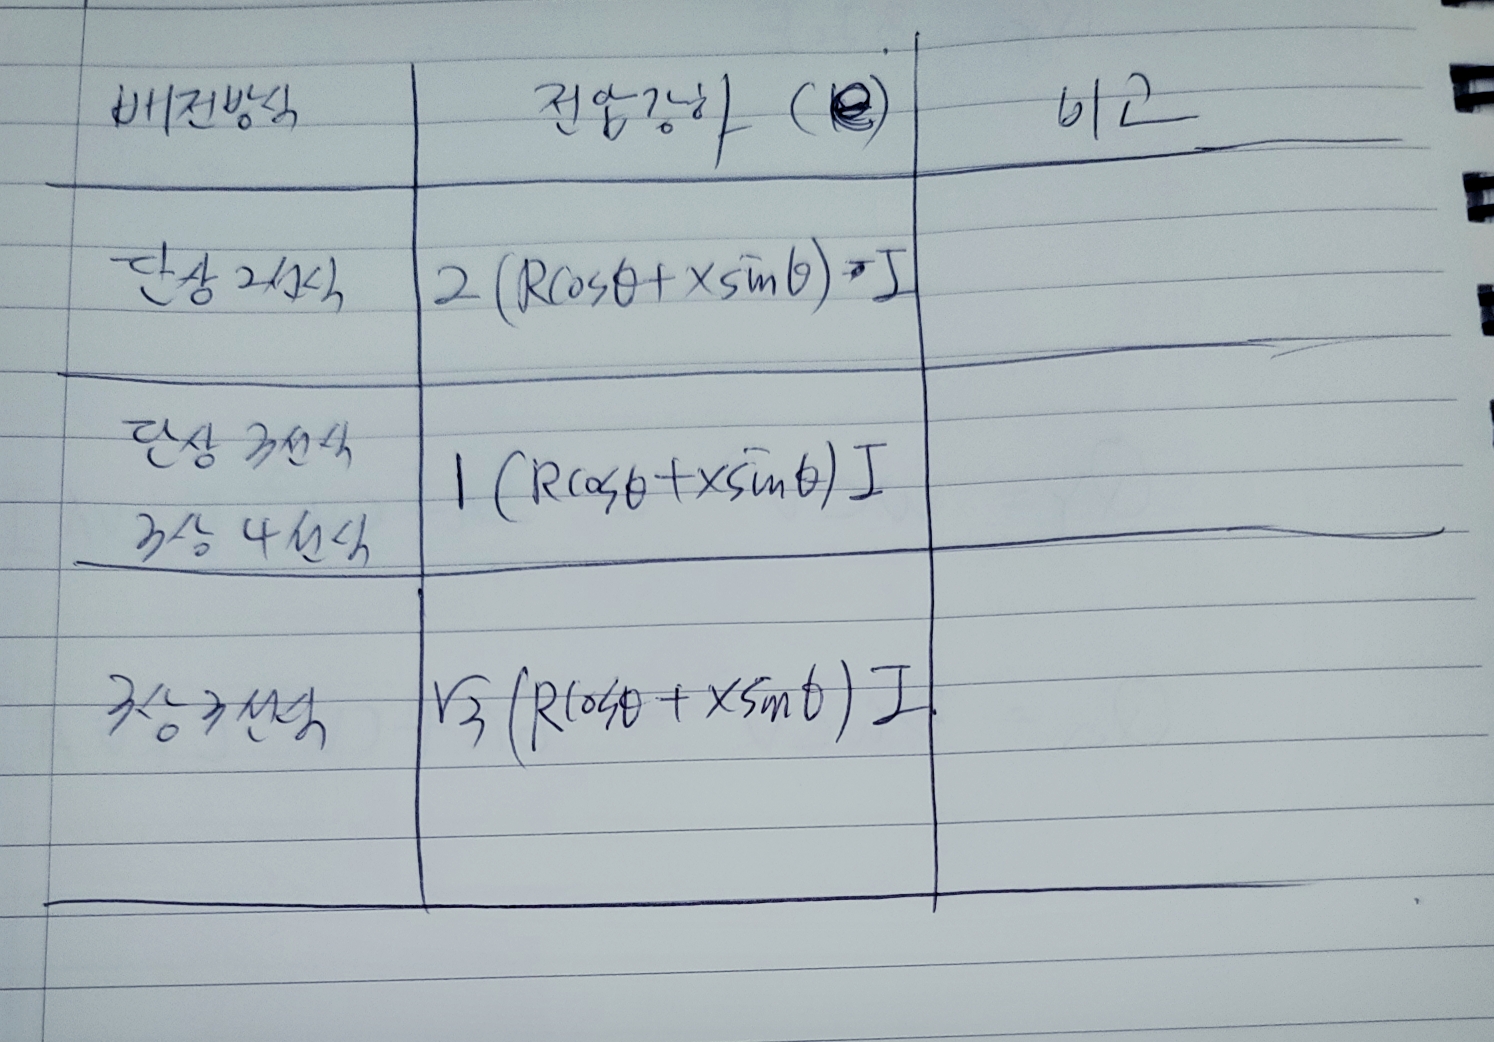 배전방식 전압강하 (e) 비고
단상 2선식 2(Rcosθ+xsinθ)·I
단상 3선식
1(Rcosθ+xsinθ)I
3상 4선식
3상3선식 √3(Rcosθ+xsinθ)I